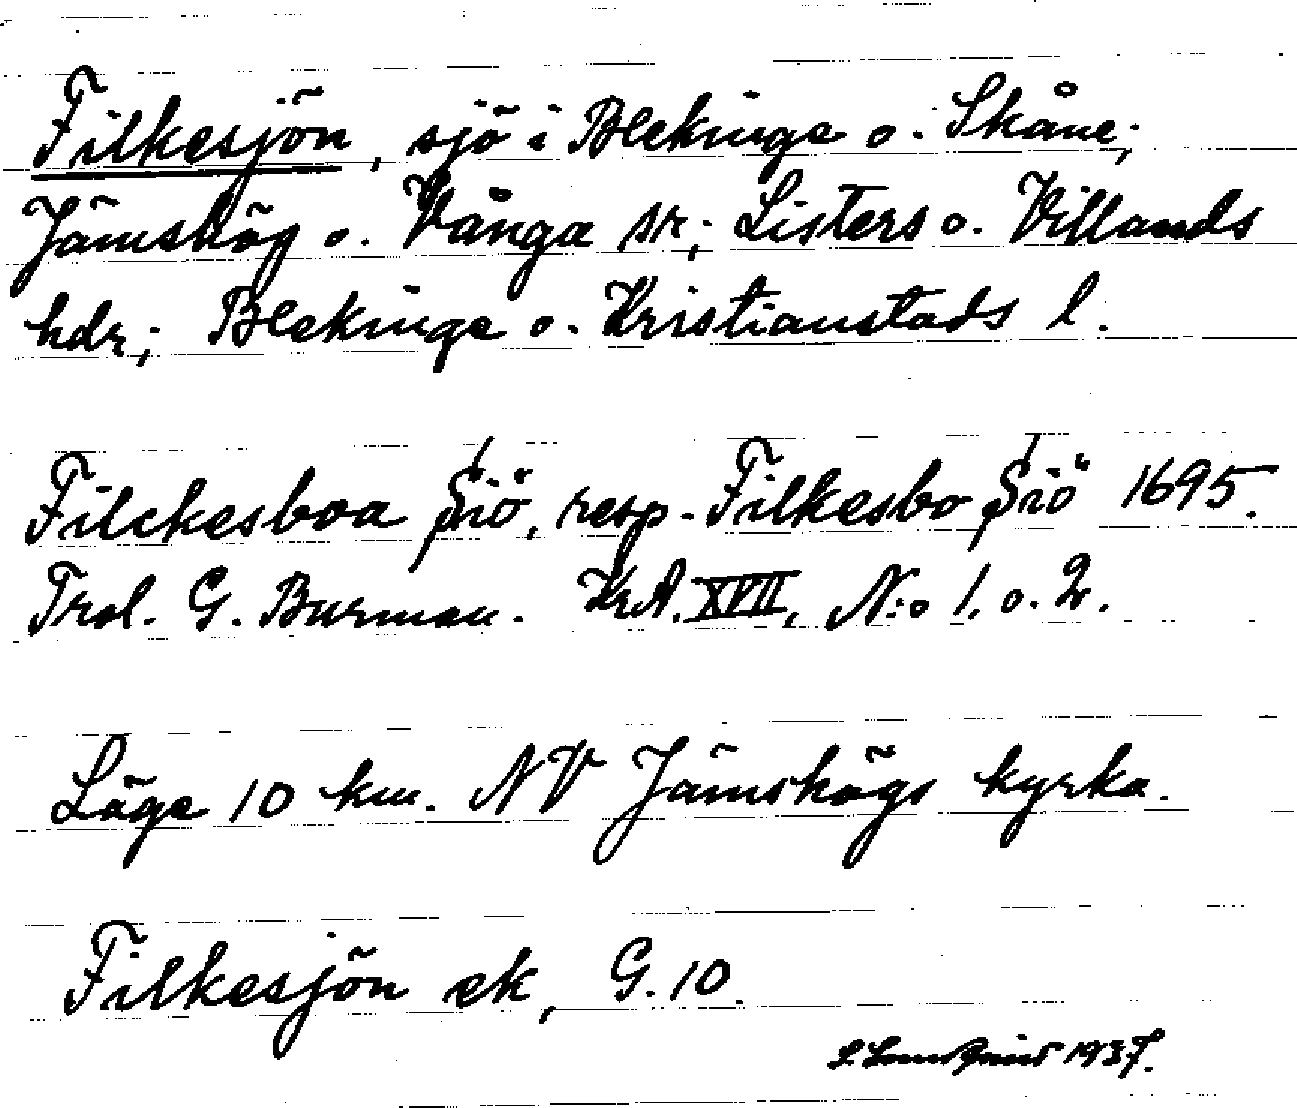 Filkesjön, sjö i Blekinge o. Skåne;
Jämshög o. Vånga sr; Listers o. Villands
hdr; Blekinge o. Kristianstads l.
Filckesboa Siö, resp. Filkesbo Siö 1695.
Trol. G. Burman. KrA. XVII, N:o 1. o. 2.
Läge 10 km. NV Jämshögs kyrka.
Filkesjön ek, G. 10.
1937.